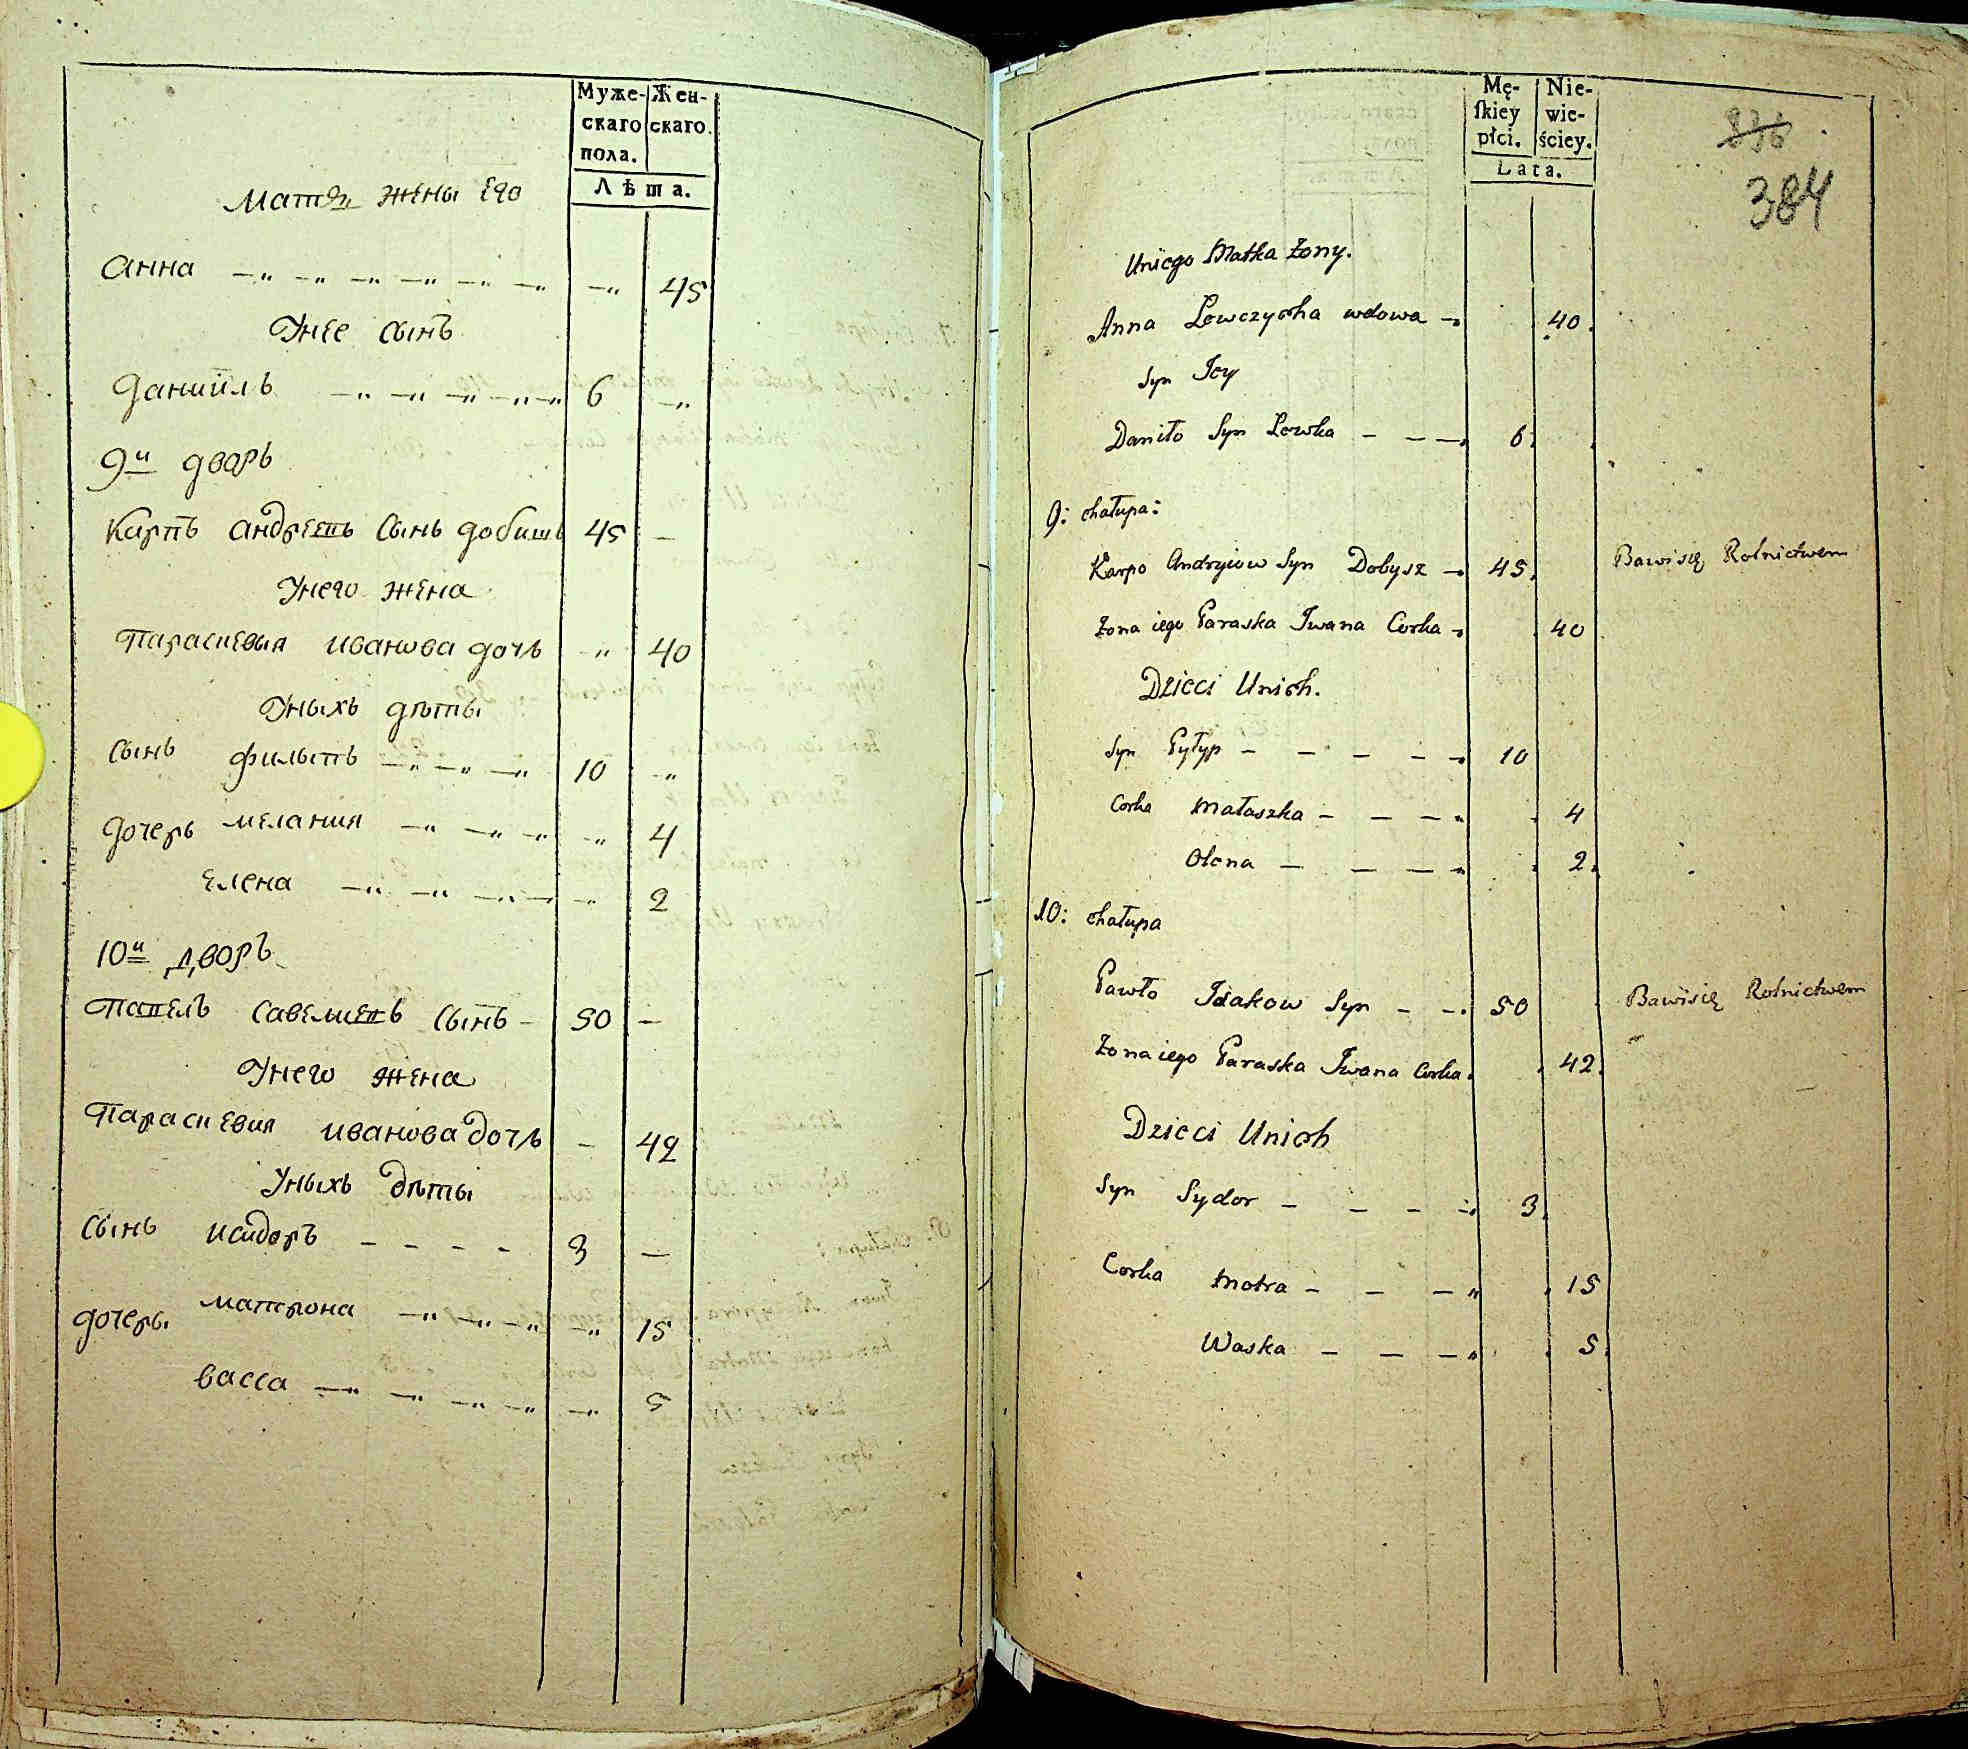 Муже- Жен-
скаго скаго.
пола.
Лѣта.
Мати жены его
Анна — 45
Унее сынъ
Даниилъ 6 —
9й дворъ
Карпъ Андреевъ сынъ Добишъ 45 —
Унего жена
Параскевия Иванова дочь — 40
Уныхъ дѣты
Сынъ Филыпъ 10 —
Дочерь Мелания — 4
Елена — 2
10й дворъ
Павелъ Савелиевъ сынъ — 50 —
Унего жена
Параскевия Иванова дочь — 42
Уныхъ дѣты
Сынъ Исидоръ 3 —
Дочеры Матрона — 15
Васса — 5
Mę- Nie-
ſkiey wie-
płci. ściey.
Lata.
836
384
Uniego Matka Żony.
Anna Lewczycha wdowa 40.
Syn Jey
Daniło Syn Lewka 6.
9: chałupa:
Karpo Andryiow Syn Dobysz 45. Bawisię Rolnictwem
Żona iego Paraska Iwana Corka 40
Dzieci Unich.
Syn Pyłyp 10
Corka Małaszka 4
Olena 2.
10: chałupa
Pawło Isakow Syn 50 Bawisię Rolnictwem
Żona iego Paraska Iwana Corka. 42.
Dzieci Unich
Syn Sydor 3.
Corka Motra 15
Waska 5.